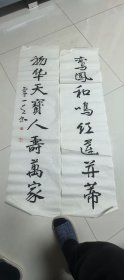 鸾凤和鸣红莲并蒂
物华天宝人寿万家